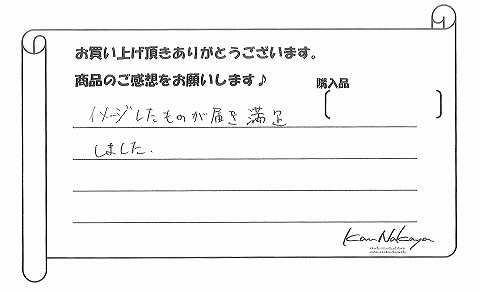 お買い上げ頂きありがとうございます。
商品のご感想をお願いします♪
購入品
〔 〕
イメージしたものが届き満足
しました.
Kan Nakaya